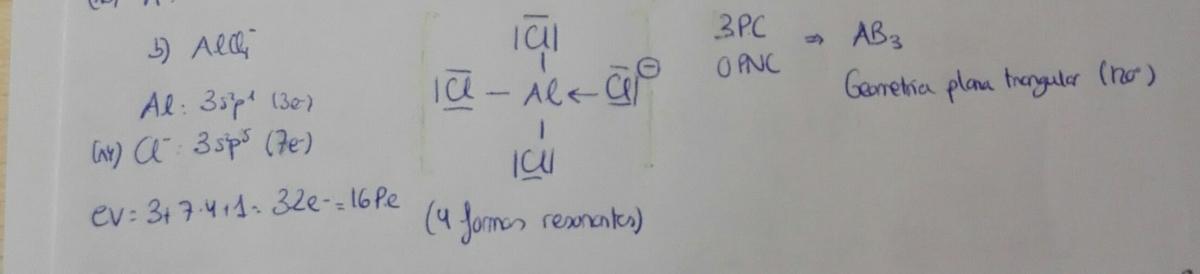 b) AlCl₄⁻
Al: 3s²p¹ (3e⁻)
(x4) Cl⁻: 3s²p⁵ (7e⁻)
eV = 3+7·4+1 = 32e⁻ = 16Pe
|Cl|
|Cl — Al ← Cl| ⊖
|Cl|
(4 formas resonantes)
3PC
0PNC
⇒ AB₃
Geometría plana triangular (120º)